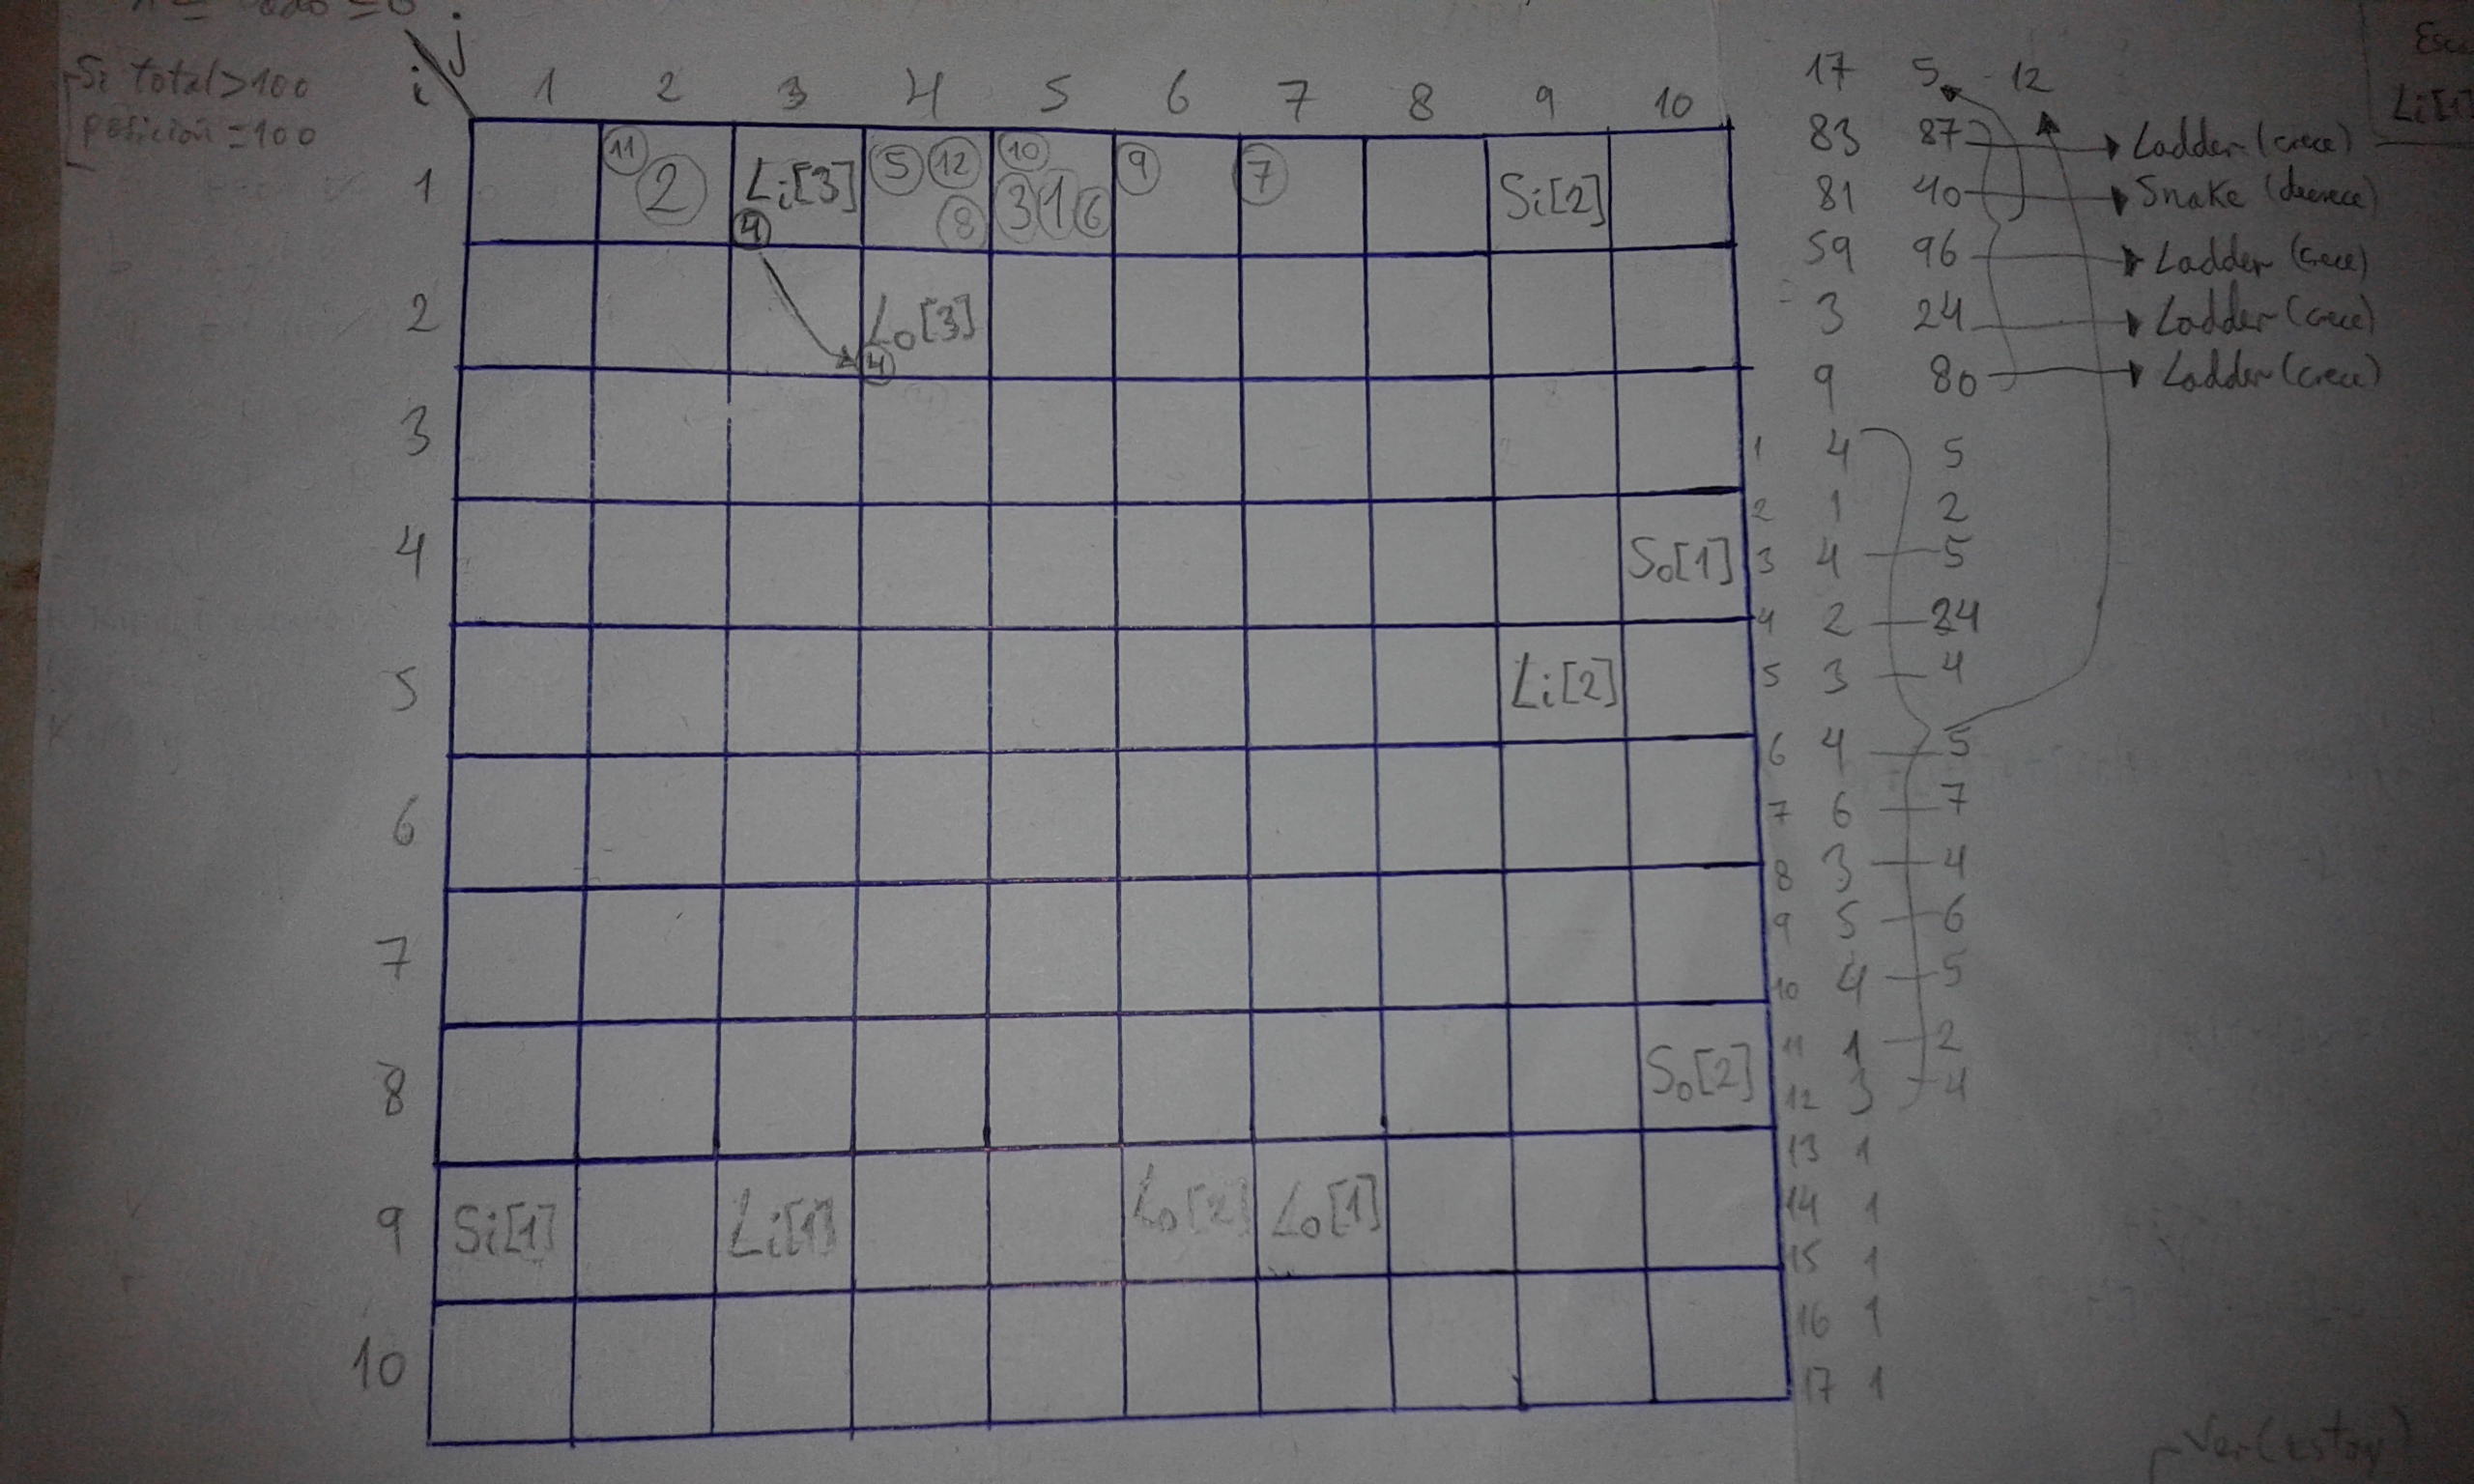 Si total>100
posición=100
i j
1 2 3 4 5 6 7 8 9 10
1 11 2 Li[3] 4 5 12 8 10 3 1 6 9 7 Si[2]
2 Lo[3] 4
3
4 So[1]
5 Li[2]
6
7
8 So[2]
9 Si[1] Li[1] Lo[2] Lo[1]
10
17 5 12
83 87 Ladder (crece)
81 40 Snake (decrece)
59 96 Ladder (crece)
3 24 Ladder (crece)
9 80 Ladder (crece)
1 4 5
2 1 2
3 4 5
4 2 24
5 3 4
6 4 5
7 6 7
8 3 4
9 5 6
10 4 5
11 1 2
12 3 4
13 1
14 1
15 1
16 1
17 1